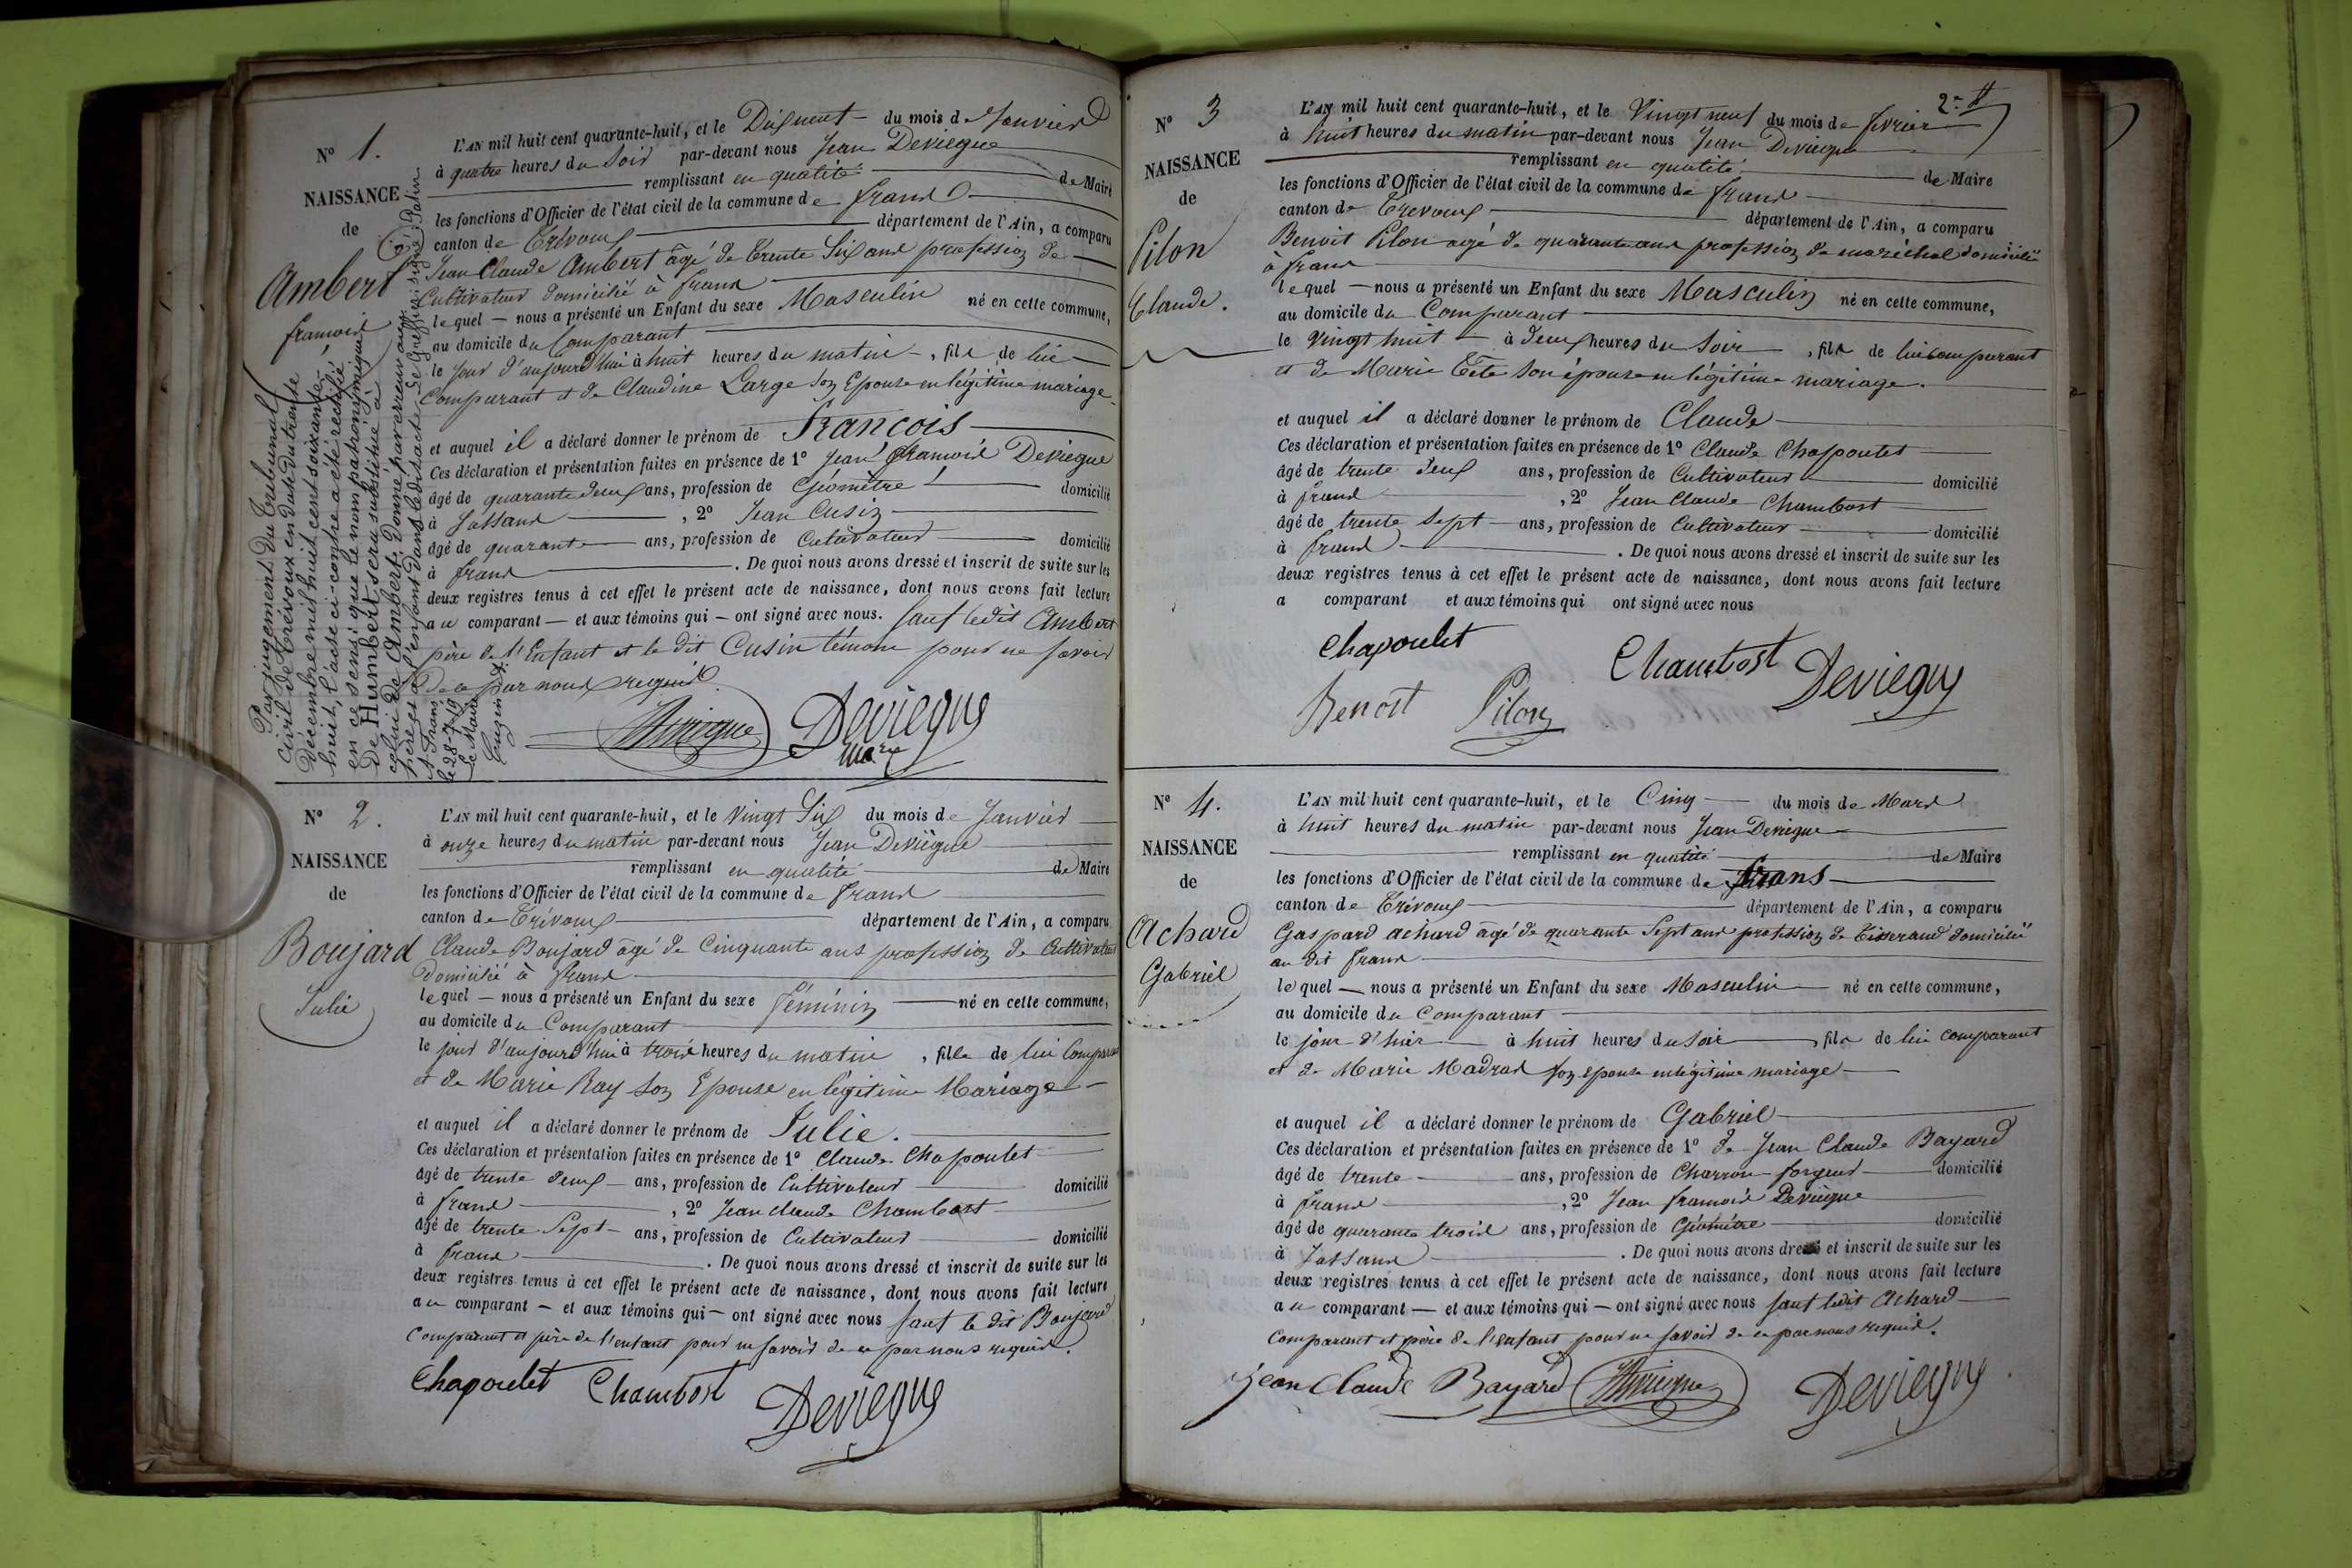 N° 1.
NAISSANCE
de
Ambert
françois
Par jugement du tribunal
civil de Trévoux en date du trente
Décembre mil huit cent soixante-
huit, l'acte ci-contre a été rectifié
en ce sens: que le nom patronymique
De Humbert sera substitué à
celui de Ambert, donné par erreur aux
père et à l'enfant dans le dit acte. Le Greffier: signé: Patin
A Frans
le 28-7-19
Le Maire
L'AN mil huit cent quarante-huit, et le Dixneuf du mois de Janvier
à quatre heures du soir par-devant nous Jean Deviegue
remplissant en qualité de Maire
les fonctions d'Officier de l'état civil de la commune de frans
canton de Trévoux département de l'Ain, a comparu
Jean Claude Ambert âgé de trente six ans profession de
Cultivateur domicilié à frans
lequel — nous a présenté un Enfant du sexe Masculin né en cette commune,
au domicile du Comparant
le jour d'aujourd'hui à huit heures du matin, fils de lui
Comparant et de Claudine Large son Epouse en légitime mariage.
et auquel il a déclaré donner le prénom de François
Ces déclaration et présentation faites en présence de 1° Jean françois Deviegue
âgé de quarante deux ans, profession de Géomètre domicilié
à Jassans, 2° Jean Cusin
âgé de quarante ans, profession de Cultivateur domicilié
à frans. De quoi nous avons dressé et inscrit de suite sur les
deux registres tenus à cet effet le présent acte de naissance, dont nous avons fait lecture
au comparant — et aux témoins qui — ont signé avec nous. sauf ledit Ambert
père de l'Enfant et le dit Cusin témoin pour ne savoir
de ce par nous requis
Deviegue Deviegue
maire
N° 2.
NAISSANCE
de
Boujard
Julie
L'AN mil huit cent quarante-huit, et le vingt six du mois de Janvier
à onze heures du matin par-devant nous Jean Deviegue
remplissant en qualité de Maire
les fonctions d'Officier de l'état civil de la commune de frans
canton de Trévoux département de l'Ain, a comparu
Claude Boujard âgé de Cinquante ans profession de Cultivateur
domicilié à frans
lequel — nous a présenté un Enfant du sexe féminin né en cette commune,
au domicile du Comparant
le jour d'aujourd'hui à trois heures du matin, fille de lui Comparant
et de Marie Ray son Epouse en légitime Mariage
et auquel il a déclaré donner le prénom de Julie.
Ces déclaration et présentation faites en présence de 1° Claude Chapoulet
âgé de trente deux ans, profession de Cultivateur domicilié
à frans, 2° Jean claude Chambost
âgé de trente sept ans, profession de Cultivateur domicilié
à frans. De quoi nous avons dressé et inscrit de suite sur les
deux registres tenus à cet effet le présent acte de naissance, dont nous avons fait lecture
au comparant — et aux témoins qui — ont signé avec nous sauf le dit Boujard
Comparant et père de l'enfant pour ne savoir de ce par nous requis.
Chapoulet Chambost Deviegue
2e
N° 3
NAISSANCE
de
Pilon
Claude.
L'AN mil huit cent quarante-huit, et le Vingt neuf du mois de février
à huit heures du matin par-devant nous Jean Deviegue
remplissant en qualité de Maire
les fonctions d'Officier de l'état civil de la commune de frans
canton de Trévoux département de l'Ain, a comparu
Benoit Pilon agé de quarante ans profession de maréchal domicilié
à frans
lequel — nous a présenté un Enfant du sexe Masculin né en cette commune,
au domicile du Comparant
le vingt huit à deux heures du soir, fils de lui comparant
et de Marie Tête son épouse en légitime mariage.
et auquel il a déclaré donner le prénom de Claude
Ces déclaration et présentation faites en présence de 1° Claude Chapoulet
âgé de trente deux ans, profession de Cultivateur domicilié
à frans, 2° Jean Claude Chambost
âgé de trente sept ans, profession de Cultivateur domicilié
à frans. De quoi nous avons dressé et inscrit de suite sur les
deux registres tenus à cet effet le présent acte de naissance, dont nous avons fait lecture
a comparant et aux témoins qui ont signé avec nous
Chapoulet
Chambost Deviegue
Benoit Pilon
N° 4.
NAISSANCE
de
Achard
Gabriel
L'AN mil huit cent quarante-huit, et le Cinq du mois de Mars
à huit heures du matin par-devant nous Jean Deviegue
remplissant en qualité de Maire
les fonctions d'Officier de l'état civil de la commune de frans
canton de Trévoux département de l'Ain, a comparu
Gaspard achard âgé de quarante sept ans profession de tisserand domicilié
au dit frans
lequel — nous a présenté un Enfant du sexe Masculin né en cette commune,
au domicile du Comparant
le jour d'hier à huit heures du soir, fils de lui comparant
et de Marie Madras son épouse en légitime mariage
et auquel il a déclaré donner le prénom de Gabriel
Ces déclaration et présentation faites en présence de 1° de Jean Claude Bayard
âgé de trente ans, profession de Charron forgeur domicilié
à frans, 2° Jean françois Deviegue
âgé de quarante trois ans, profession de Géomètre domicilié
à Jassans. De quoi nous avons dressé et inscrit de suite sur les
deux registres tenus à cet effet le présent acte de naissance, dont nous avons fait lecture
au comparant — et aux témoins qui — ont signé avec nous sauf ledit Achard
Comparant et père de l'enfant pour ne savoir de ce par nous requis.
jean Claude Bayard Deviegue Deviegue